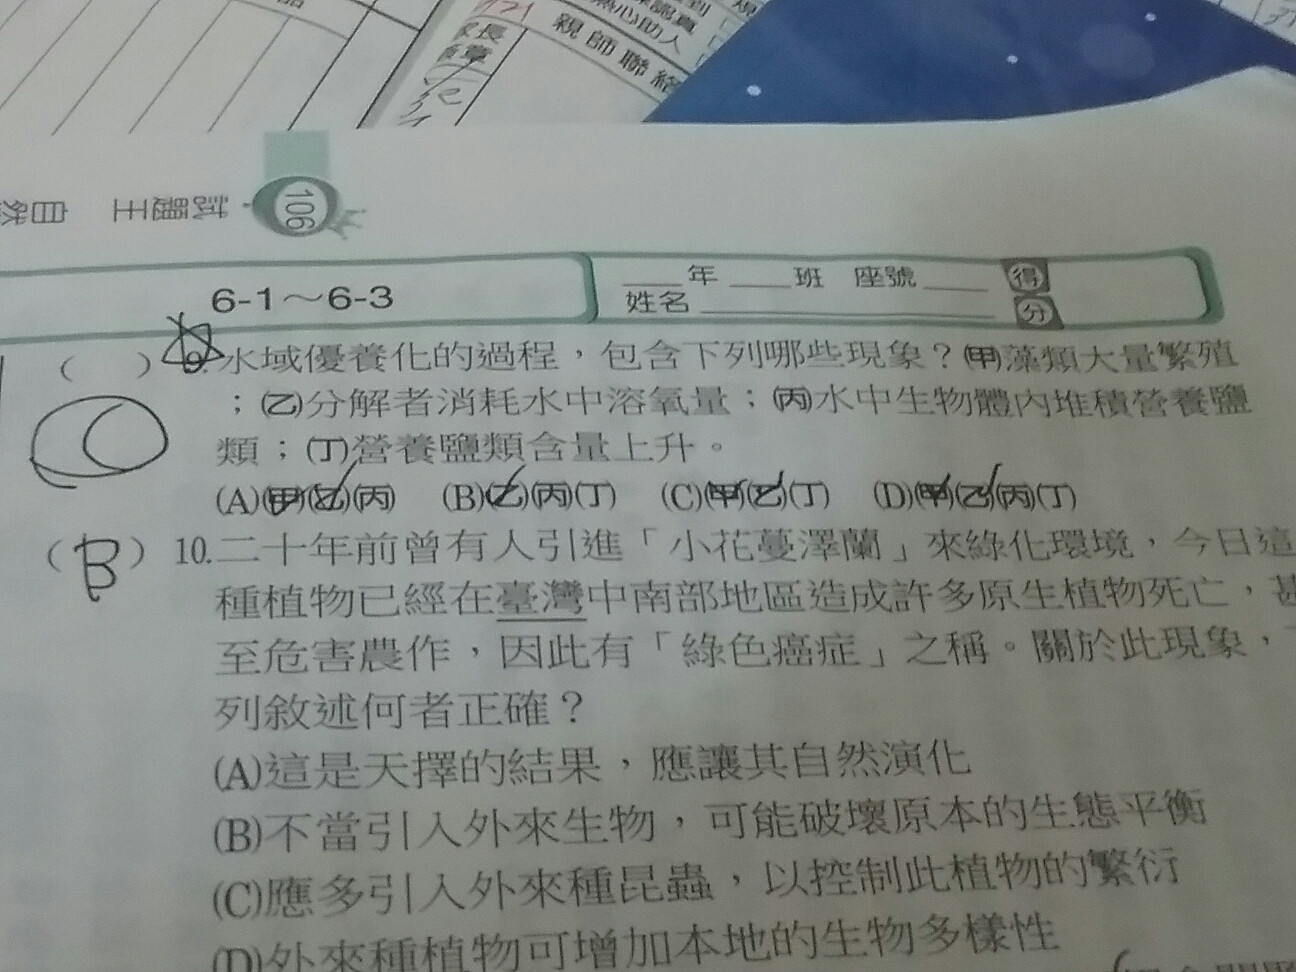 親師聯絡
106
試題王 自然
6-1～6-3
年 班 座號 得分
姓名
( ) 9.水域優養化的過程，包含下列哪些現象？(甲)藻類大量繁殖
；(乙)分解者消耗水中溶氧量；(丙)水中生物體內堆積營養鹽
類；(丁)營養鹽類含量上升。
(A)(甲)(乙)(丙) (B)(乙)(丙)(丁) (C)(甲)(乙)(丁) (D)(甲)(乙)(丙)(丁)
(B) 10.二十年前曾有人引進「小花蔓澤蘭」來綠化環境，今日這
種植物已經在臺灣中南部地區造成許多原生植物死亡，甚
至危害農作，因此有「綠色癌症」之稱。關於此現象，
列敘述何者正確？
(A)這是天擇的結果，應讓其自然演化
(B)不當引入外來生物，可能破壞原本的生態平衡
(C)應多引入外來種昆蟲，以控制此植物的繁衍
(D)外來種植物可增加本地的生物多樣性